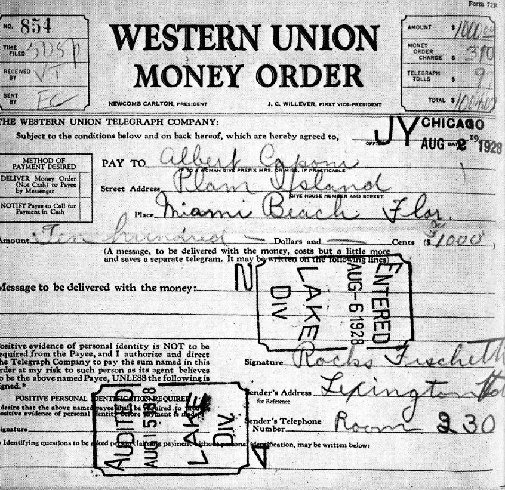 Form 72B
NO. 854
TIME FILED
RECEIVED BY
SENT BY
WESTERN UNION
MONEY ORDER
NEWCOMB CARLTON, PRESIDENT J. C. WILLEVER, FIRST VICE-PRESIDENT
AMOUNT $
MONEY ORDER CHARGE $
TELEGRAPH TOLLS $
TOTAL $
THE WESTERN UNION TELEGRAPH COMPANY:
Subject to the conditions below and on back hereof, which are hereby agreed to,
JY CHICAGO
AUG 2 1928
METHOD OF PAYMENT DESIRED
DELIVER Money Order (Not Cash) to Payee by Messenger
NOTIFY Payee to Call for Payment in Cash
PAY TO Albert Capone
Street Address Plam Island
GIVE HOUSE NUMBER AND STREET
Place Miami Beach Flor.
Amount Ten hundred Dollars and Cents ($1000
(A message, to be delivered with the money, costs but a little more
and saves a separate telegram. It may be written on the following lines)
Message to be delivered with the money:
ENTERED
AUG-6 1928
LAKE
DIV
Positive evidence of personal identity is NOT to be
required from the Payee, and I authorize and direct
the Telegraph Company to pay the sum named in this
order at my risk to such person as its agent believes
to be the above named Payee, UNLESS the following is
signed.*
Signature Rocks Fischetti
POSITIVE PERSONAL IDENTIFICATION REQUIRED
Signature
Sender's Address for Reference Lexington
Sender's Telephone Number Room 230
AUDITED
AUG 15 1928
LAKE
DIV.